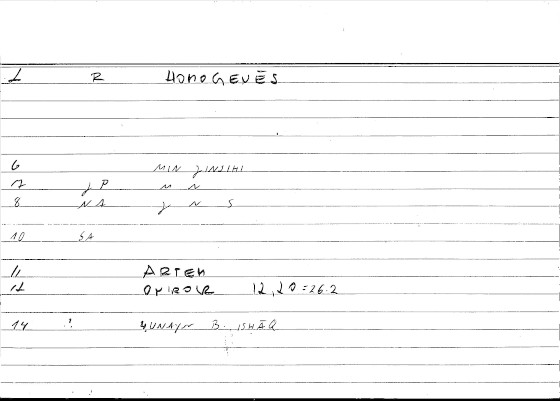 1 R HOMOGENĒS
6 MIN ǦINSIHI
7 ǧ P M N
8 NA ǧ N S
10 SA
11 ARTEM
12 ONIROCR 12,20=26.2
14 ḤUNAYN B. ISḤĀQ